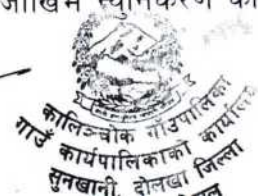 जोखिम न्युनिकरण का
कालिञ्चोक गाउँपालिका
गाउँ कार्यपालिकाको कार्यालय
सुनखानी, दोलखा जिल्ला